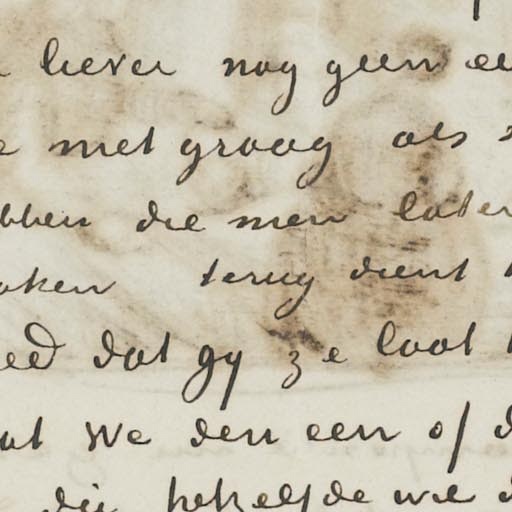 liever nog geen ee
met graag als
bben die men later
aken terug dient
eed dat gy ze laat
at We den een of d
die hetzelfde wil